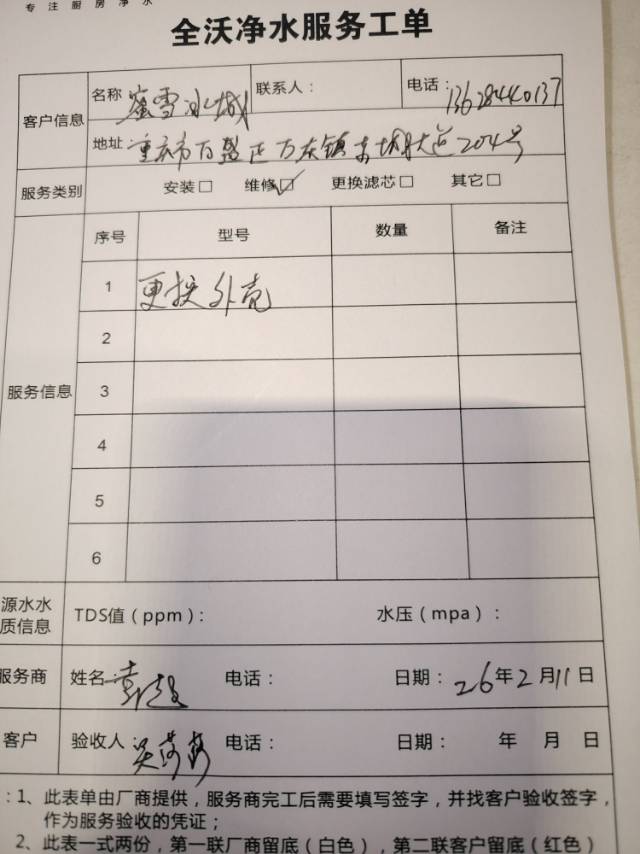 专注厨房净水
全沃净水服务工单
客户信息 名称 蜜雪冰城 联系人： 电话：13628440137
地址 重庆市万盛区万东镇 大道204号
服务类别 安装□ 维修☑ 更换滤芯□ 其它□
服务信息 序号 型号 数量 备注
1 更换外壳
2
3
4
5
6
源水水质信息 TDS值（ppm）： 水压（mpa）：
服务商 姓名： 袁 电话： 日期：26年2月11日
客户 验收人： 吴 电话： 日期： 年 月 日
：1、此表单由厂商提供，服务商完工后需要填写签字，并找客户验收签字，
作为服务验收的凭证；
2、此表一式两份，第一联厂商留底（白色），第二联客户留底（红色）